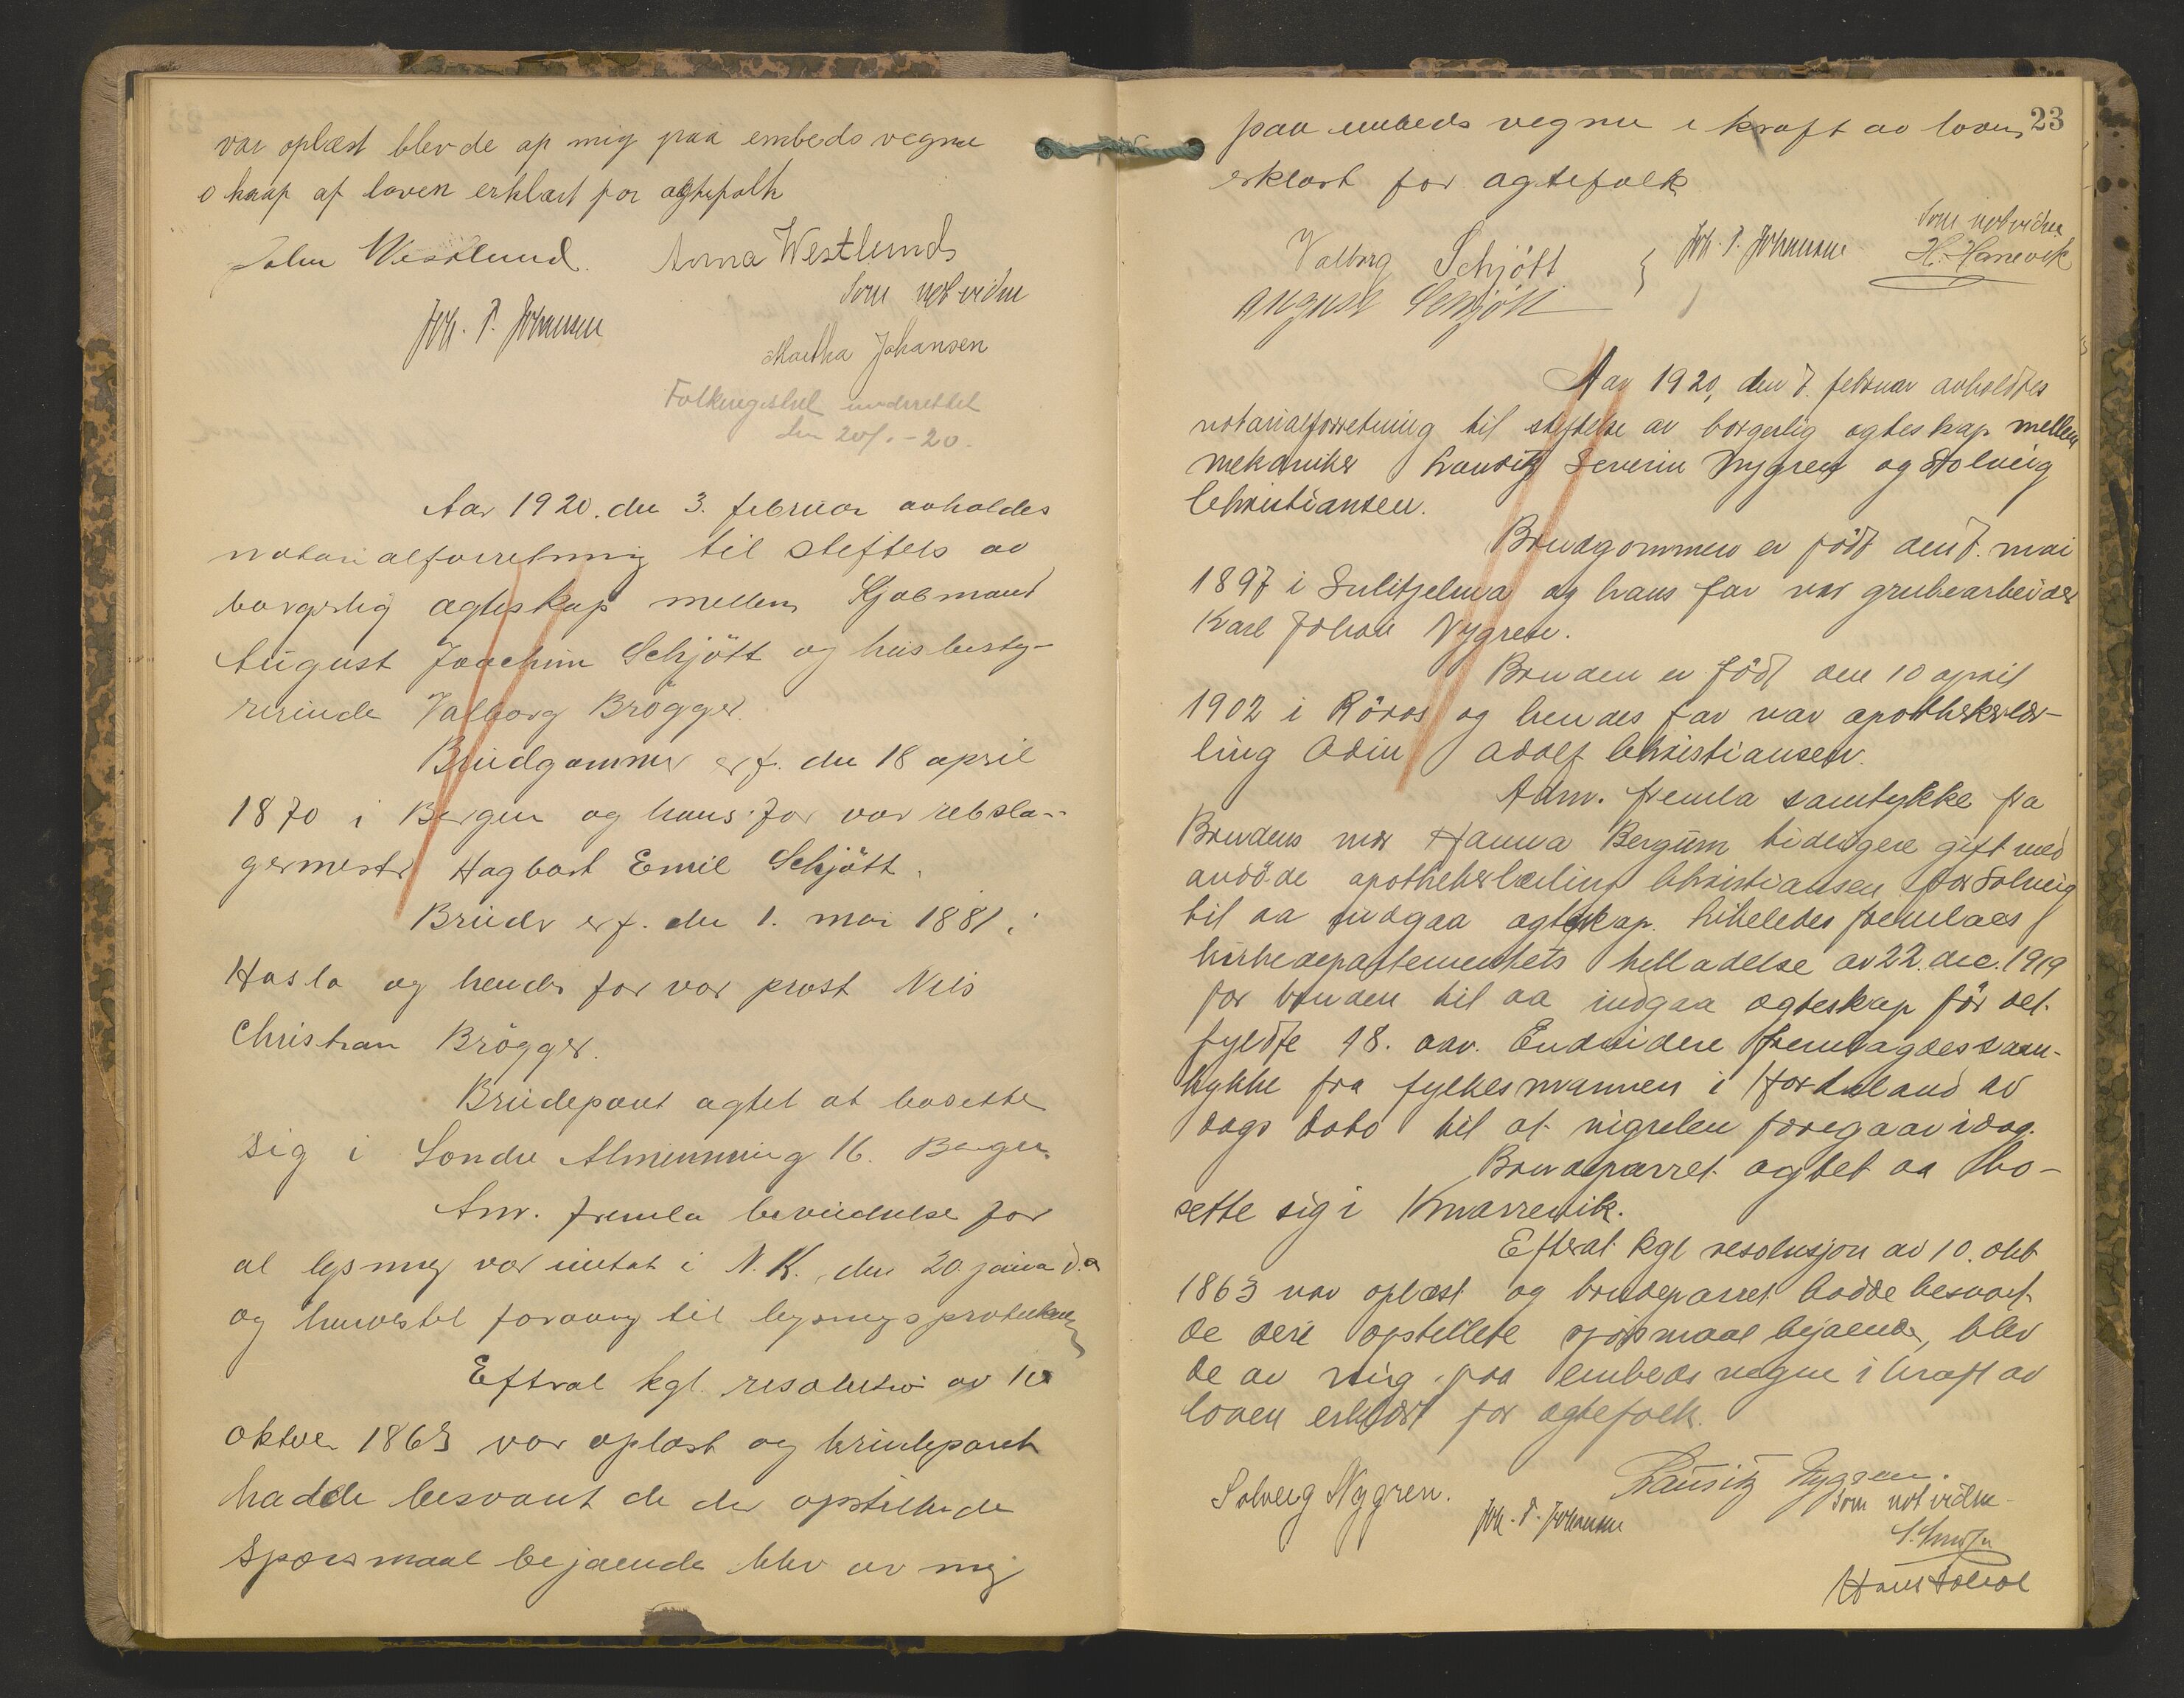 var oplæst blev de af mig paa embeds vegne
i kraft af loven erklært for ægtefolk
John Westlund. Anna Westlund
Som not vidne
Joh. P. Johansen
Martha Johansen
Folkeregistret underrettet
den 20/1.-20.
Aar 1920. den 3. februar avholdes
notarialforretning til stiftels av
borgerlig ægteskap mellem Sjøbmand
August Joachim Schjött og husbesty-
rerinde Valborg Brögger.
Brudgommen er f. den 18 april
1870 i Bergen og hans far var rebsla-
germester Hagbart Emil Schjött.
Bruden er f. den 1. mai 1881 i
Hasla og hendes far var prost Nils
Christian Brögger.
Brudeparet agtet at bosette
sig i Søndre Almenning 16. Bergen.
Anv. fremla bevidnelse for
at lysning var inntat i N.K. den 20. januar d.a
og henvistet forøvrig til lysningsprotokollen
Efterat kgl. resolution av 10
oktober 1863 var oplæst og brudeparet
hadde besvaret de der opstillede
spørsmaal bejaende blev av mig
23
paa embeds vegne i kraft av loven
erklært for ægtefolk
Valborg Schjött Joh. P. Johansen Som not vidne
August Schjött H. Hanevik
Aar 1920, den 7. februar avholdtes
notarialforretning til stiftelse av borgerlig egteskap mellem
mekaniker Lausitz Severin Nygren og Solveig
Christiansen.
Brudgommen er födt den 7. mai
1897 i Sulitjelma og hans far var grubearbeider
Karl Johan Nygren.
Bruden er födt den 10 april
1902 i Röros og hendes far var apothekerlær-
ling Odin Adolf Christiansen.
Adm. fremla samtykke fra
Brudens mor Hanna Bergum tidligere gift med
avdöde apothekerlærling Christiansen for Solveig
til aa indgaa egteskap. Likeledes fremlaes
kirkedepartementets tilladelse av 22. dec. 1919
for bruden til aa indgaa egteskap för det
fyldte 18. aar. Endvidere fremlagdes sam-
tykke fra fylkesmannen i Hordaland av
dags dato til at vigselen foregaar idag.
Brudeparret agtet aa bo-
sette sig i Knarrevik.
Efterat kgl resolusjon av 10. okt
1863 var oplæst og brudeparret hadde besvart
de deri opstillede spörsmaal bejaende, blev
de av mig paa embeds vegne i kraft av
loven erklært for egtefolk.
Solveig Nygren. Lausitz Nygren.
Joh. P. Johansen Som not vidne